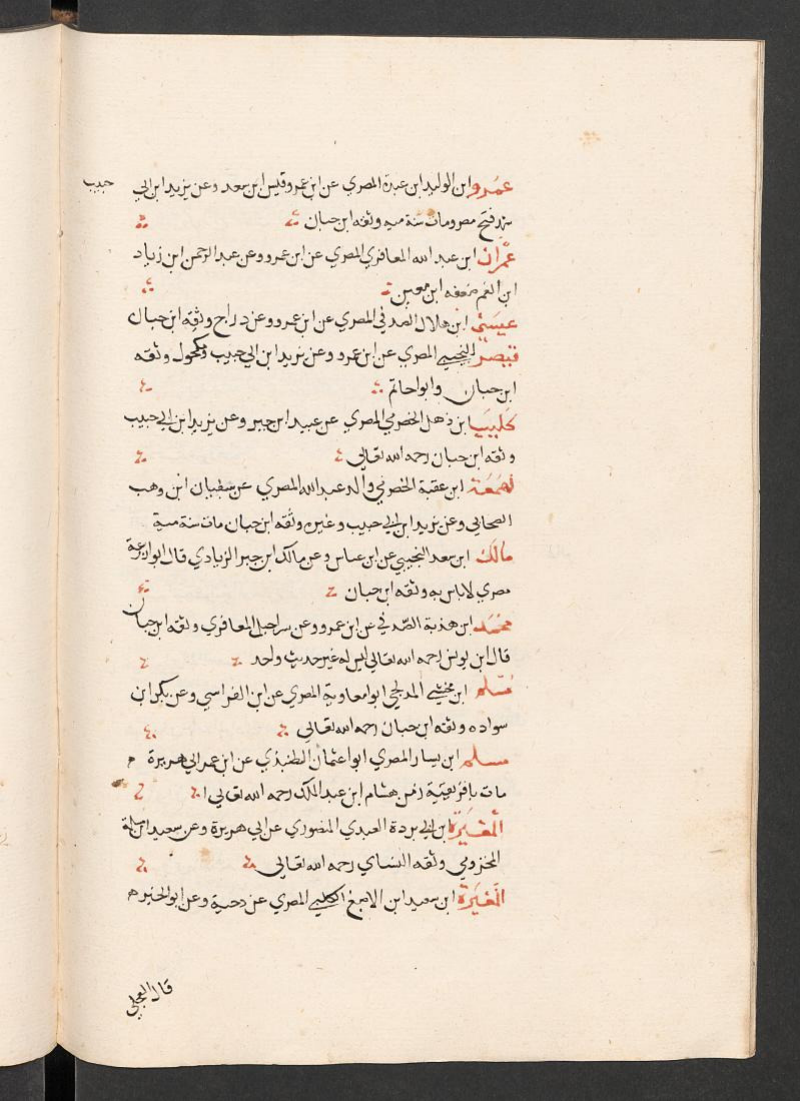 عمرو ابن الوليد ابن عبدة المصري عن ابن عمرو وقيس ابن سعد وعن يزيد ابن ابي حبيب
شهد فتح مصر ومات سنة مية وثقه ابن حبان
عمران ابن عبد الله المعافري المصري عن ابن عمرو وعن عبد الرحمن ابن زياد
ابن انعم ضعفه ابن معين
عيسى ابن هلال الصدفي المصري عن ابن عمرو وعن دراج وثقه ابن حبان
قيصر التجيبي المصري عن ابن عمرو وعن يزيد ابن ابي حبيب ومكحول وثقه
ابن حبان وابو احاتم
كليب ابن ذهل الحضرمي المصري عن عبيد ابن جبر وعن يزيد ابن ابي حبيب
وثقه ابن حبان رحمه الله تعالى
ابن عقبة الحضرمي والد عبد الله المصري عن سفيان ابن وهب
الصحابي وعن يزيد ابن ابي حبيب وغيره وثقه ابن حبان مات سنة مية
مالك ابن سعد التجيبي عن ابن عباس وعن مالك ابن جبر الزيادي قال ابوا زرعة
مصري لا باس به وثقه ابن حبان
ابن هدية الصدفي عن ابن عمرو وعن سراحيل المعافري وثقه ابن حبان
قال ابن يونس رحمه الله تعالى ليس له غير حديث واحد
مسلم ابن مخشي المدلجي ابوا معاوية المصري عن ابن الفراسي وعن بكر ابن
سواده وثقه ابن حبان رحمه الله تعالى
مسلم ابن يسار المصري ابوا عثمان الطنبذي عن ابن عمر ابي هريرة
مات بافريقية زمن هشام ابن عبد الملك رحمه الله تعالى
المغيرة ابن ابي بردة العبدي عن ابي هريرة وعن سعيد ابن سلمة
المخزومي وثقه النساي رحمه الله تعالى
المغيرة ابن سعيد ابن الاصبغ الكلبي المصري عن دحية وعن ابو الخير
قال العجلي